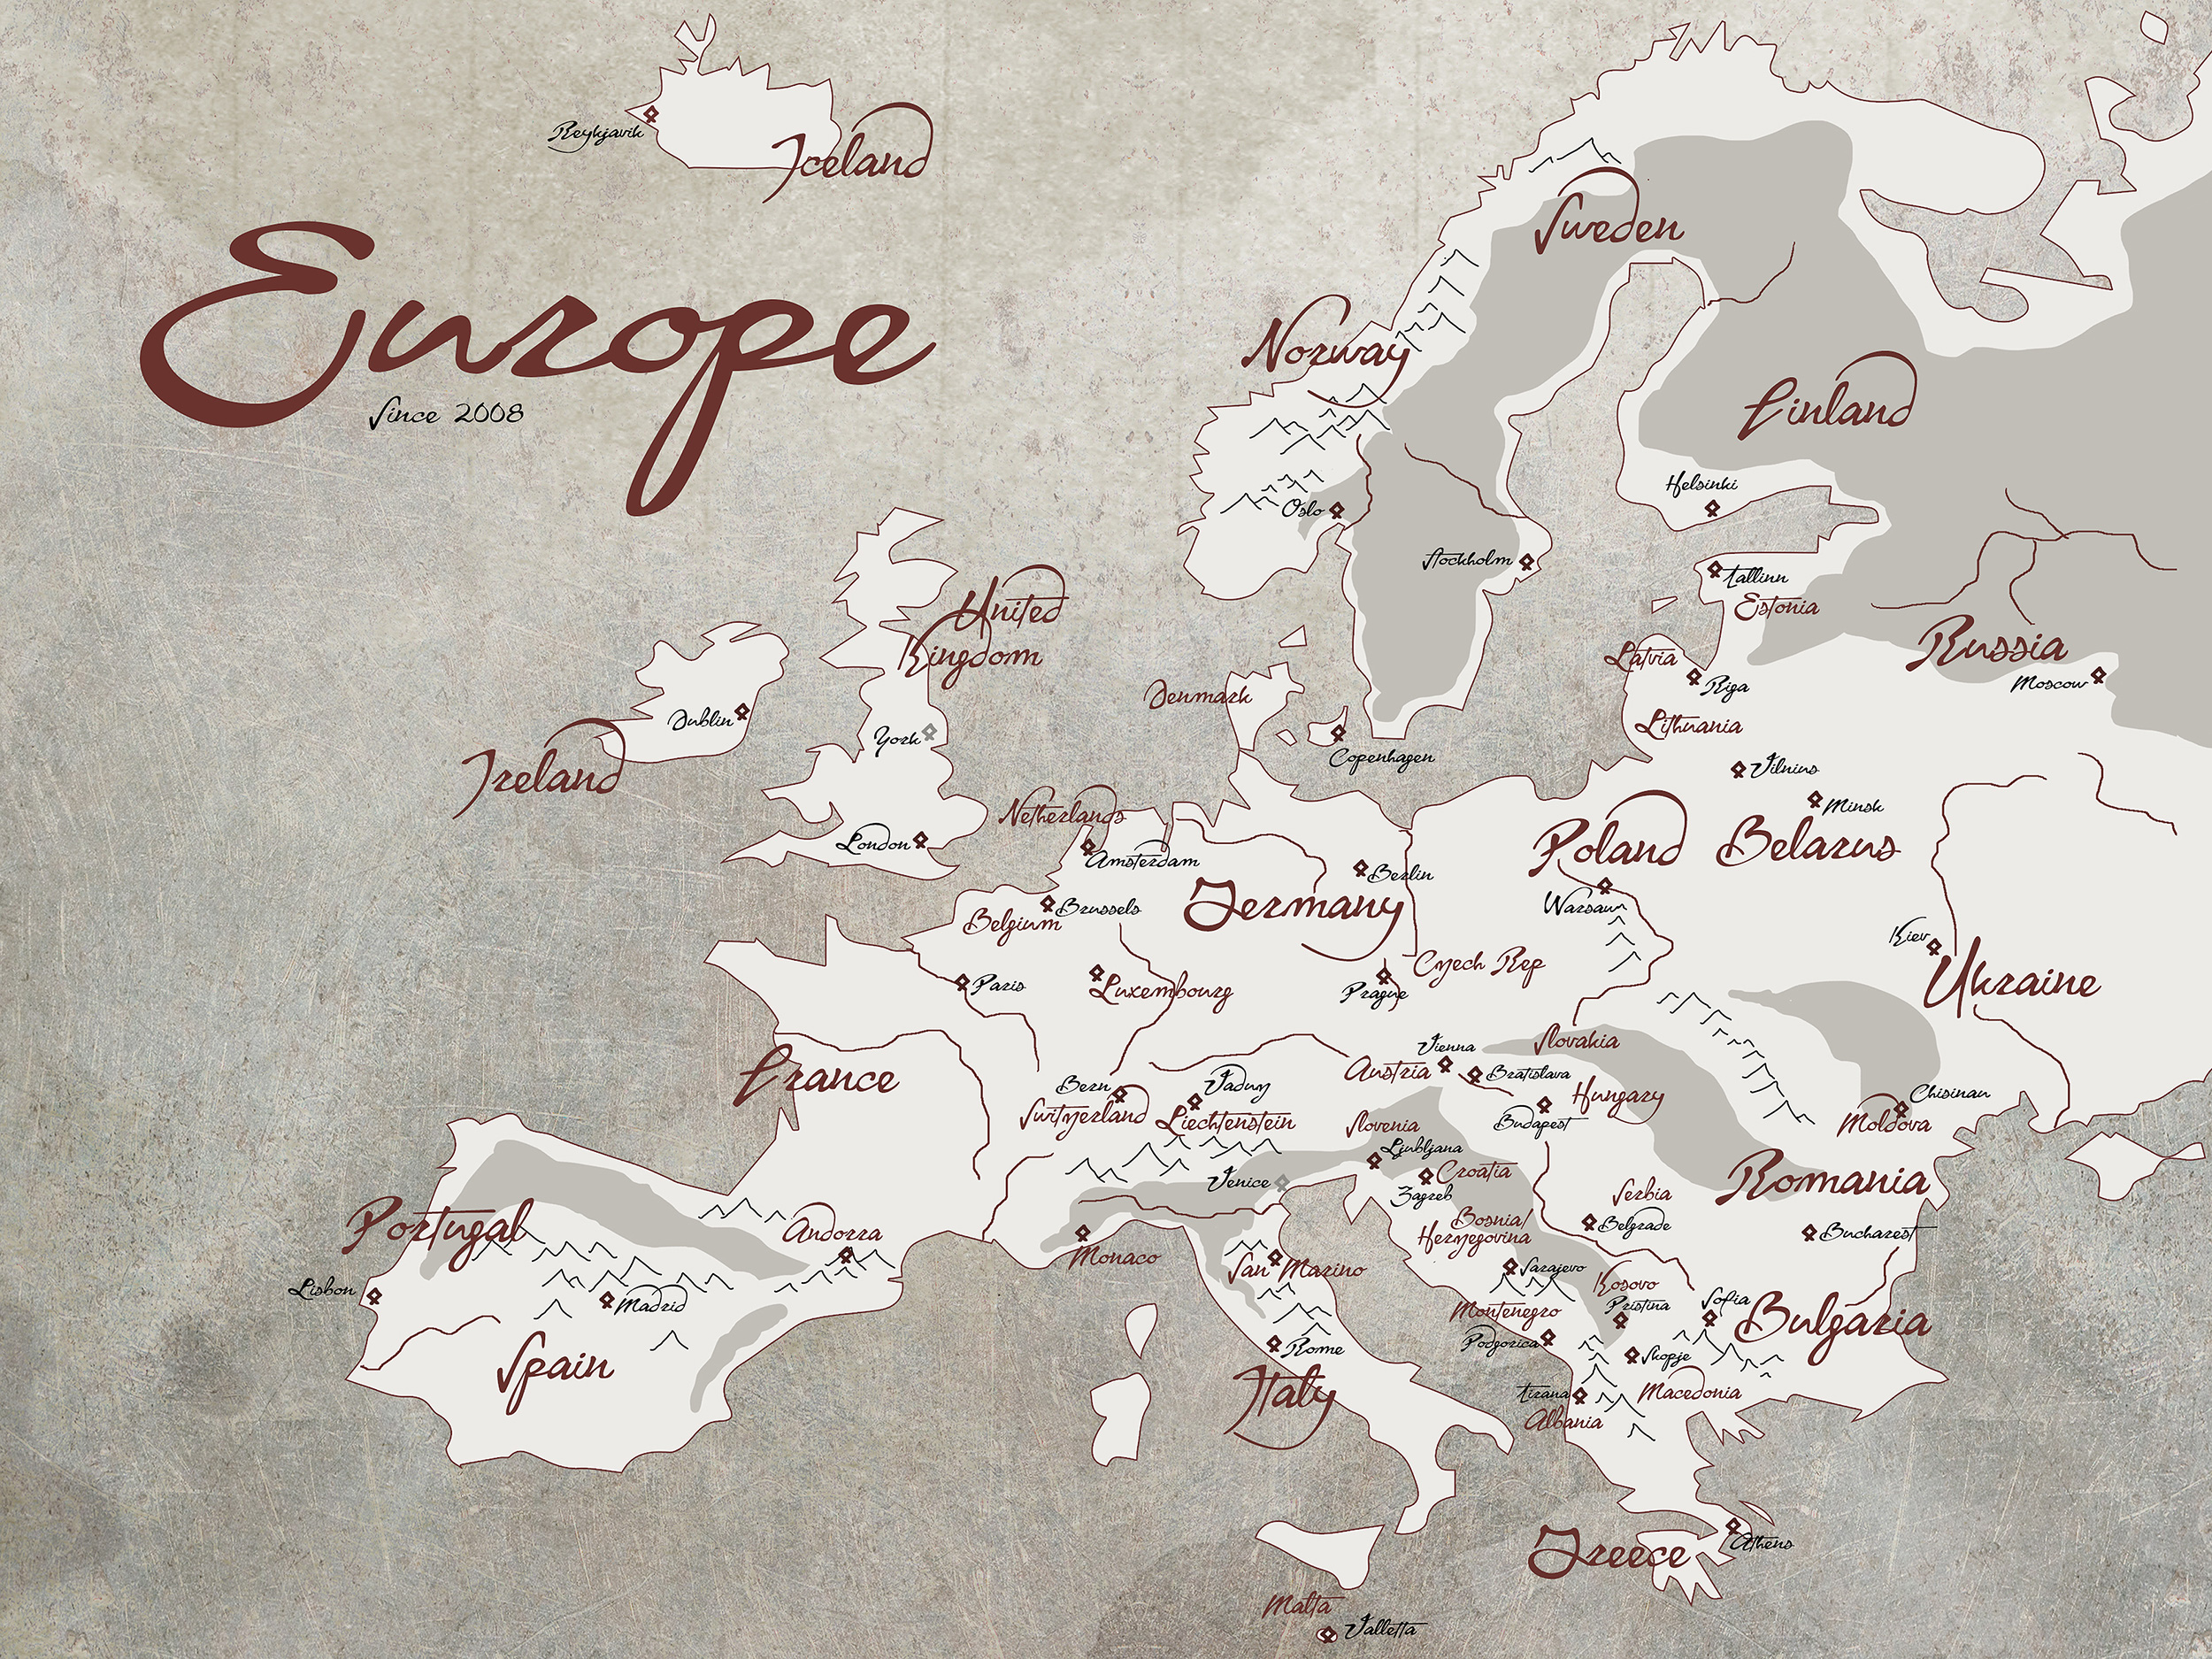 Reykjavik
Iceland
Europe
Since 2008
Sweden
Norway
Finland
Helsinki
Oslo
Stockholm
Tallinn
Estonia
United
Kingdom
Russia
Moscow
Latvia
Riga
Denmark
Dublin
York
Lithuania
Copenhagen
Vilnius
Ireland
Minsk
Netherlands
London
Amsterdam
Poland
Belarus
Berlin
Germany
Warsaw
Brussels
Belgium
Kiev
Ukraine
Czech Rep
Paris
Luxembourg
Prague
Slovakia
Vienna
France
Austria
Bratislava
Bern
Vaduz
Hungary
Chisinau
Switzerland
Liechtenstein
Budapest
Slovenia
Moldova
Ljubljana
Croatia
Venice
Zagreb
Romania
Serbia
Portugal
Andorra
Bosnia/
Herzegovina
Belgrade
Bucharest
Monaco
San Marino
Sarajevo
Kosovo
Lisbon
Madrid
Montenegro
Pristina
Sofia
Bulgaria
Podgorica
Rome
Skopje
Spain
Italy
Tirana
Macedonia
Albania
Greece
Athens
Malta
Valletta